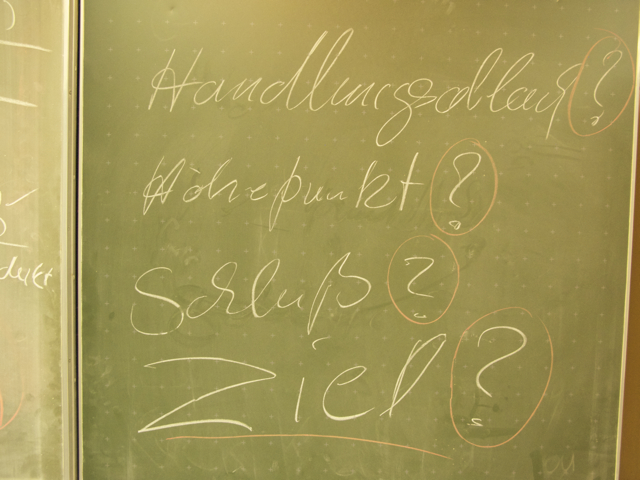 Handlungsablauf?
Höhepunkt?
Schluß?
Ziel?